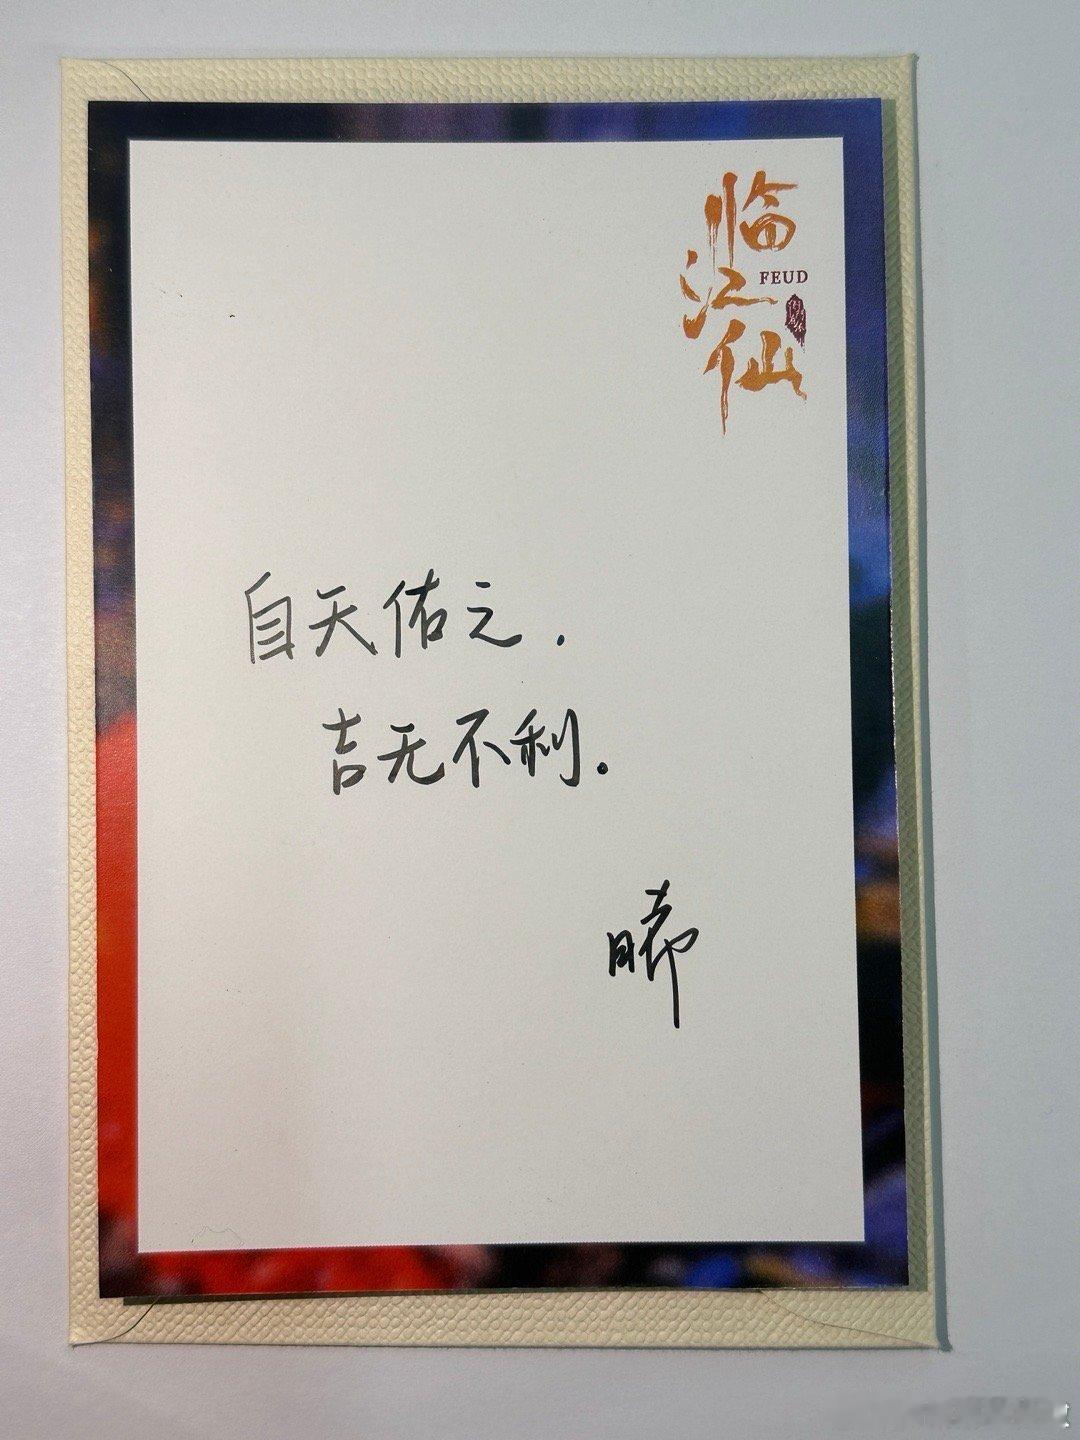 临江仙
FEUD
自天佑之.
吉无不利.